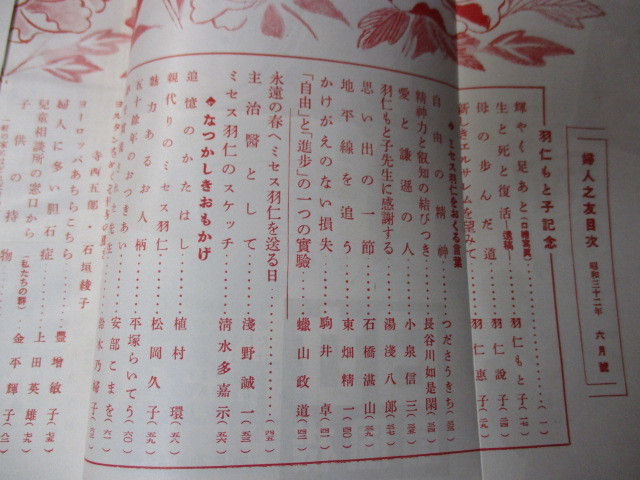 婦人之友目次 昭和三十二年 六月號
羽仁もと子記念………(一)
輝やく足あと(口繪寫眞)
生と死と復活―遺稿―………羽仁もと子
母の歩んだ道………羽仁說子
新しきエルサレムを望みて………羽仁惠子
◆ミセス羽仁をおくる言葉
自由の精神………つださうきち
精神力と叡知の結びつき………長谷川如是閑
愛と謙遜の人………小泉信三
羽仁もと子先生に感謝する………湯淺八郎
思い出の一節………石橋湛山
地平線を追う………東畑精一
かけがえのない損失………駒井卓
「自由」と「進歩」の一つの實驗………蠟山政道
永遠の春へミセス羽仁を送る日………
主治醫として………淺野誠一
ミセス羽仁のスケッチ………清水多嘉示
◆なつかしきおもかげ
追憶のかたはし………植村環
親代りのミセス羽仁………松岡久子
魅力あるお人柄………平塚らいてう
五十餘年のおつきあい………安部こまを
寺西五郎・石垣綾子
ヨーロッパあちらこちら
婦人に多い胆石症………豊增敏子
兒童相談所の窓口から………上田英雄
子供の持物(私たちの群)………金平輝子